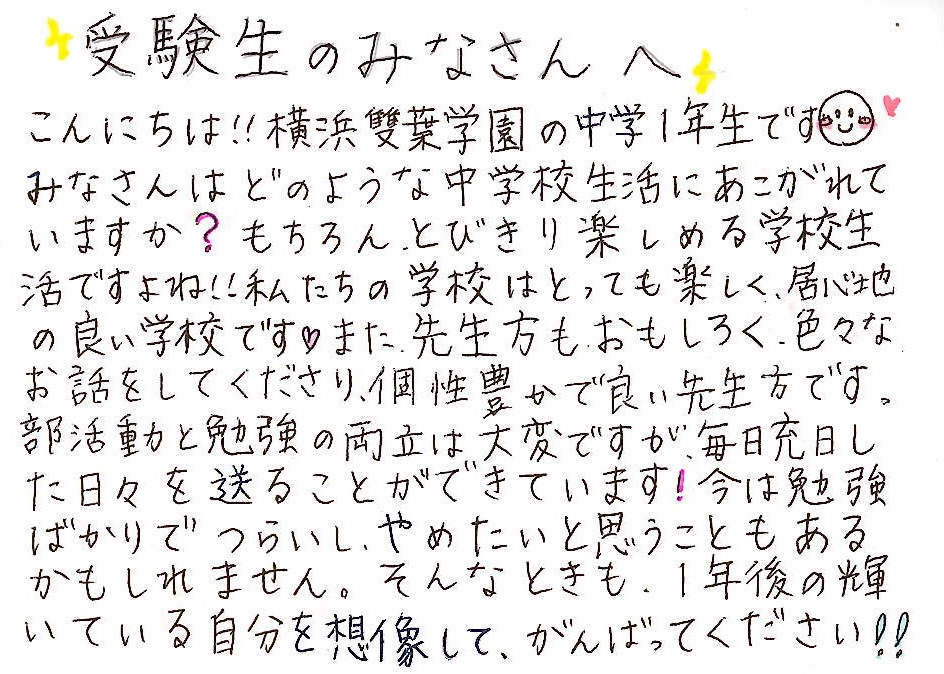 受験生のみなさんへ
こんにちは!!横浜雙葉学園の中学1年生です
みなさんはどのような中学校生活にあこがれて
いますか?もちろん、とびきり楽しめる学校生
活ですよね!!私たちの学校はとっても楽しく、居心地
の良い学校です♡また、先生方も、おもしろく、色々な
お話をしてくださり、個性豊かで良い先生方です。
部活動と勉強の両立は大変ですが、毎日充日し
た日々を送ることができています!今は勉強
ばかりでつらいし、やめたいと思うこともある
かもしれません。そんなときも、1年後の輝
いている自分を想像して、がんばってください!!